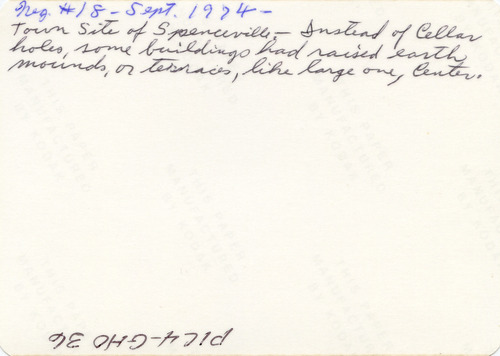 Neg. #18 - Sept. 1974 -
Town Site of Spenceville, - Instead of Cellar
holes, some buildings had raised earth
mounds, or terraces, like large one, Center.
THIS PAPER
MANUFACTURED
BY KODAK
P124-GHO 36